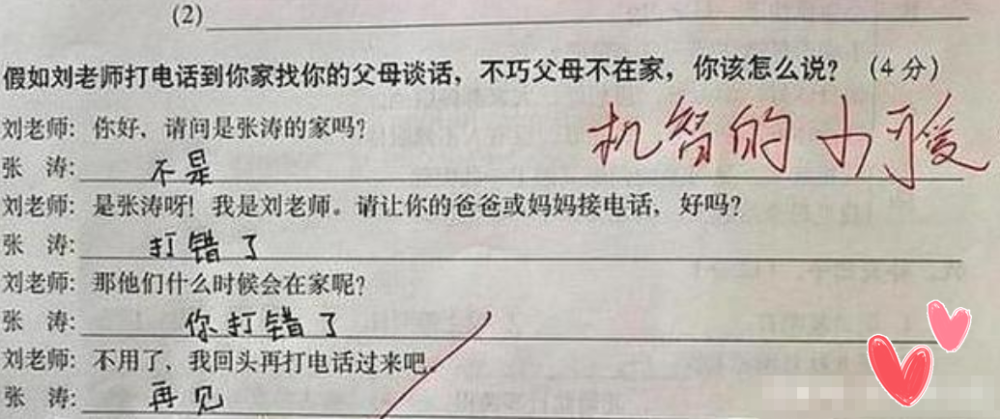 (2)
假如刘老师打电话到你家找你的父母谈话，不巧父母不在家，你该怎么说？（4分）
刘老师：你好，请问是张涛的家吗？
机智的小可爱
张 涛：不是
刘老师：是张涛呀！我是刘老师。请让你的爸爸或妈妈接电话，好吗？
张 涛：打错了
刘老师：那他们什么时候会在家呢？
张 涛：你打错了
刘老师：不用了，我回头再打电话过来吧。
张 涛：再见